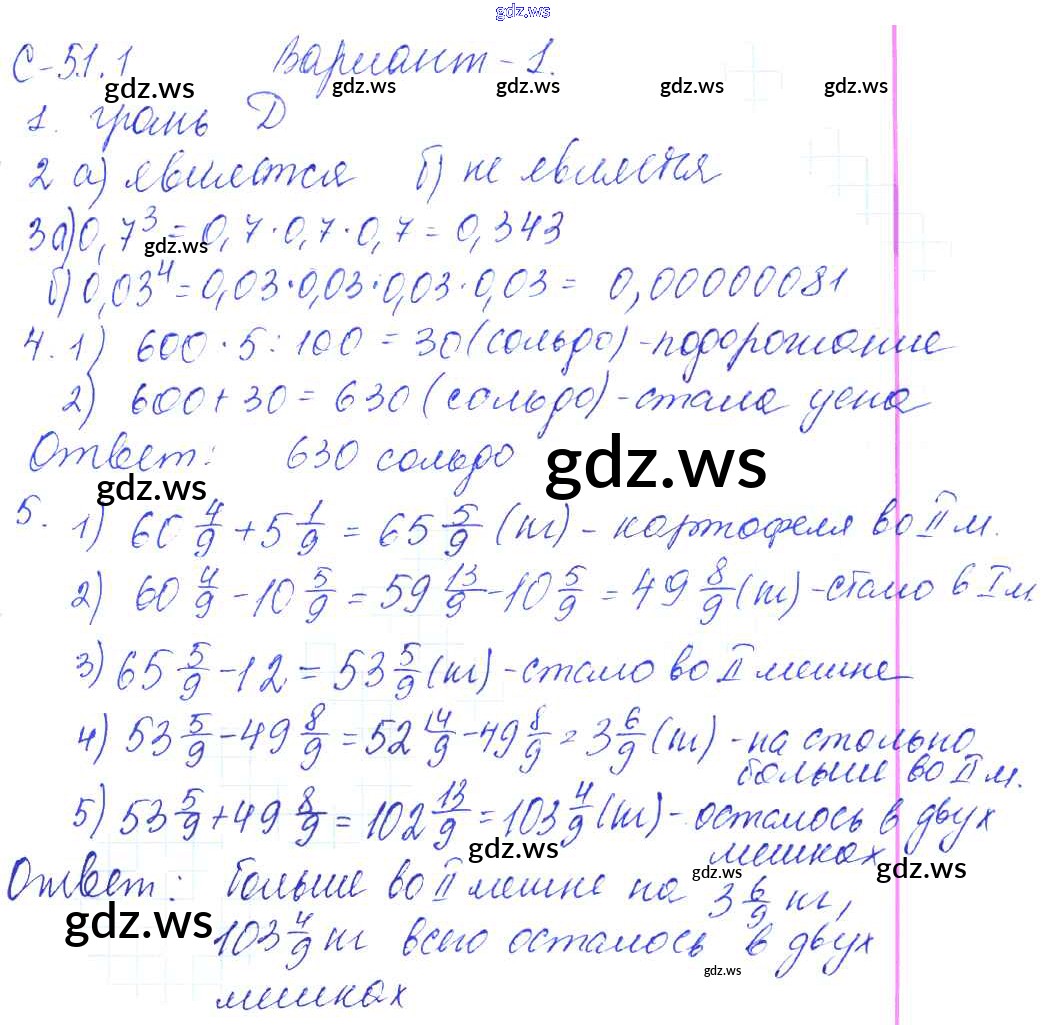 gdz.ws
С-51.1 Вариант-1.
gdz.ws gdz.ws gdz.ws gdz.ws gdz.ws
1. грань Д
2 а) является б) не является
3а) 0,7³ = 0,7·0,7·0,7 = 0,343
gdz.ws
б) 0,03⁴ = 0,03·0,03·0,03·0,03 = 0,00000081
4. 1) 600·5:100 = 30 (сольдо) - подорожание
2) 600+30 = 630 (сольдо) - стала цена
Ответ: 630 сольдо
gdz.ws gdz.ws
5. 1) 60 4/9 + 5 1/9 = 65 5/9 (кг) - картофеля во II м.
2) 60 4/9 - 10 5/9 = 59 13/9 - 10 5/9 = 49 8/9 (кг) - стало в I м.
3) 65 5/9 - 12 = 53 5/9 (кг) - стало во II мешке
4) 53 5/9 - 49 8/9 = 52 14/9 - 49 8/9 = 3 6/9 (кг) - на столько
больше во II м.
5) 53 5/9 + 49 8/9 = 102 13/9 = 103 4/9 (кг) - осталось в двух
мешках
gdz.ws gdz.ws
Ответ: больше во II мешке на 3 6/9 кг,
gdz.ws
103 4/9 кг всего осталось в двух
gdz.ws
мешках